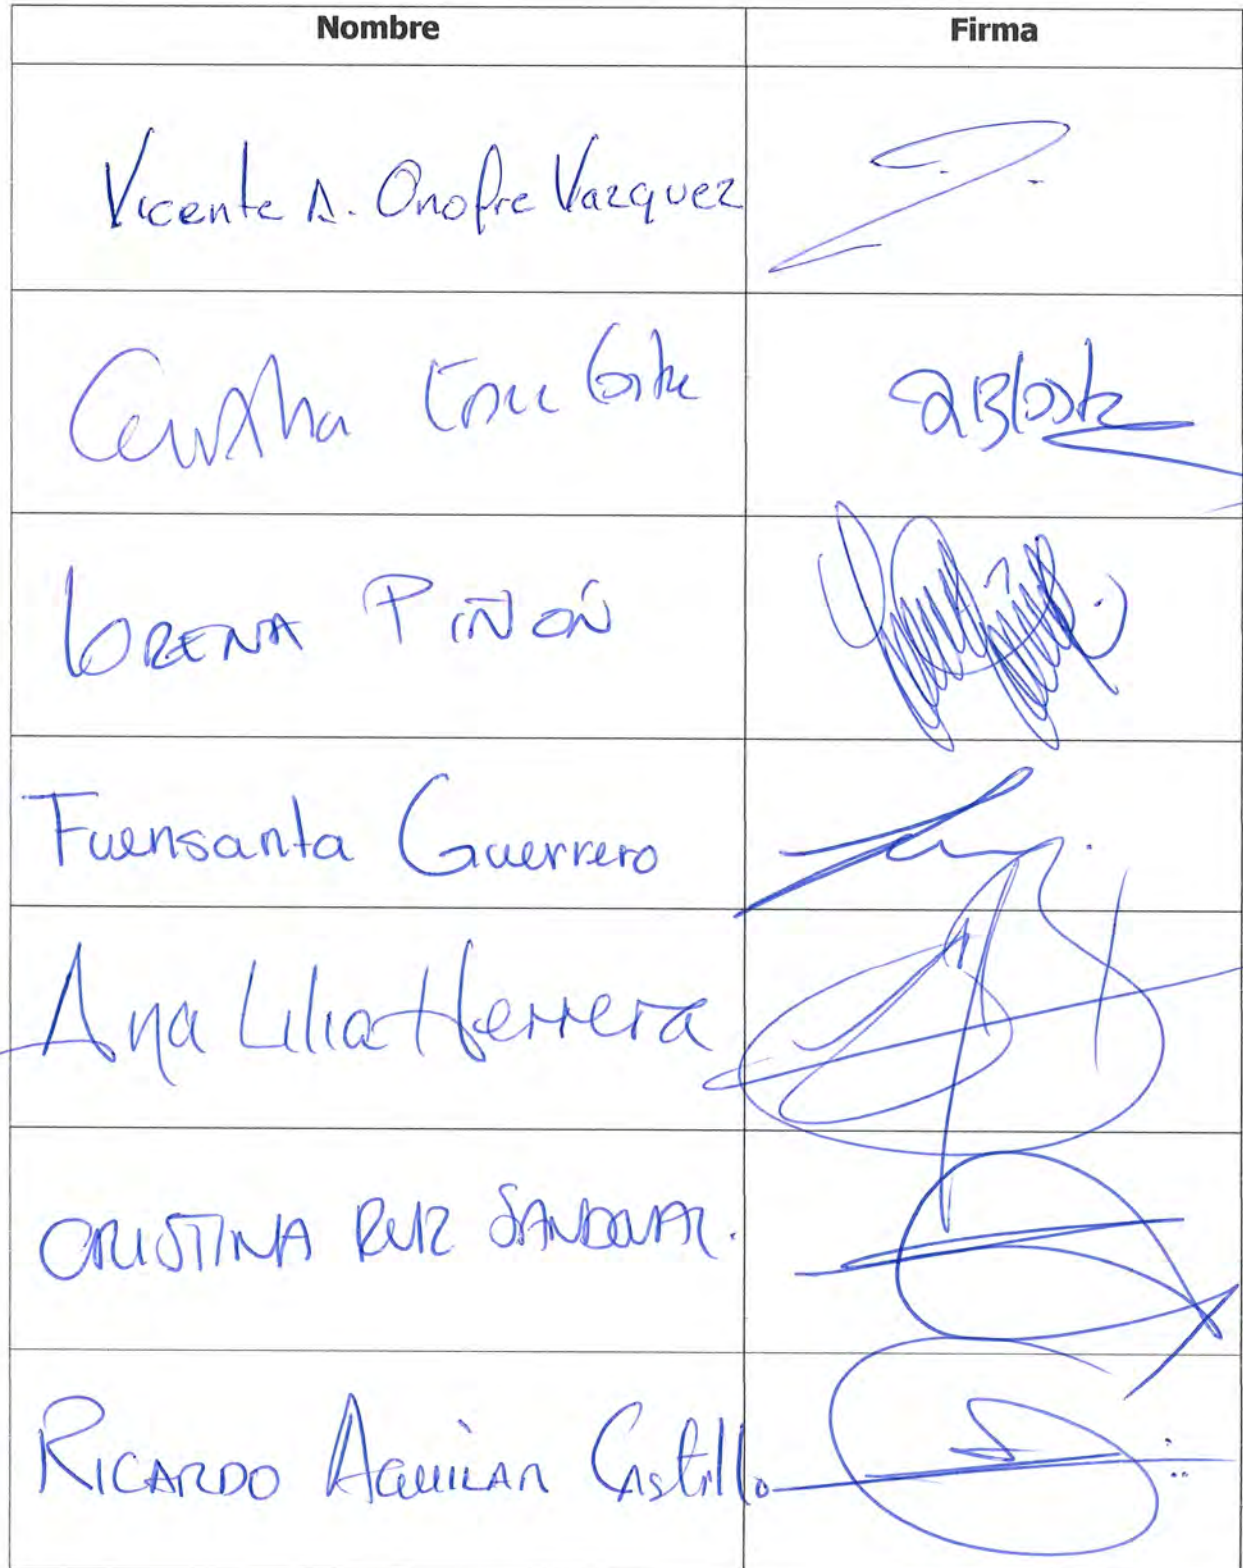 Nombre Firma
Vicente A. Onofre Vazquez
LORENA PIÑÓN
Fuensanta Guerrero
Ana Lilia Herrera
CRISTINA RUIZ SANDOVAL.
RICARDO AGUILAR Castillo